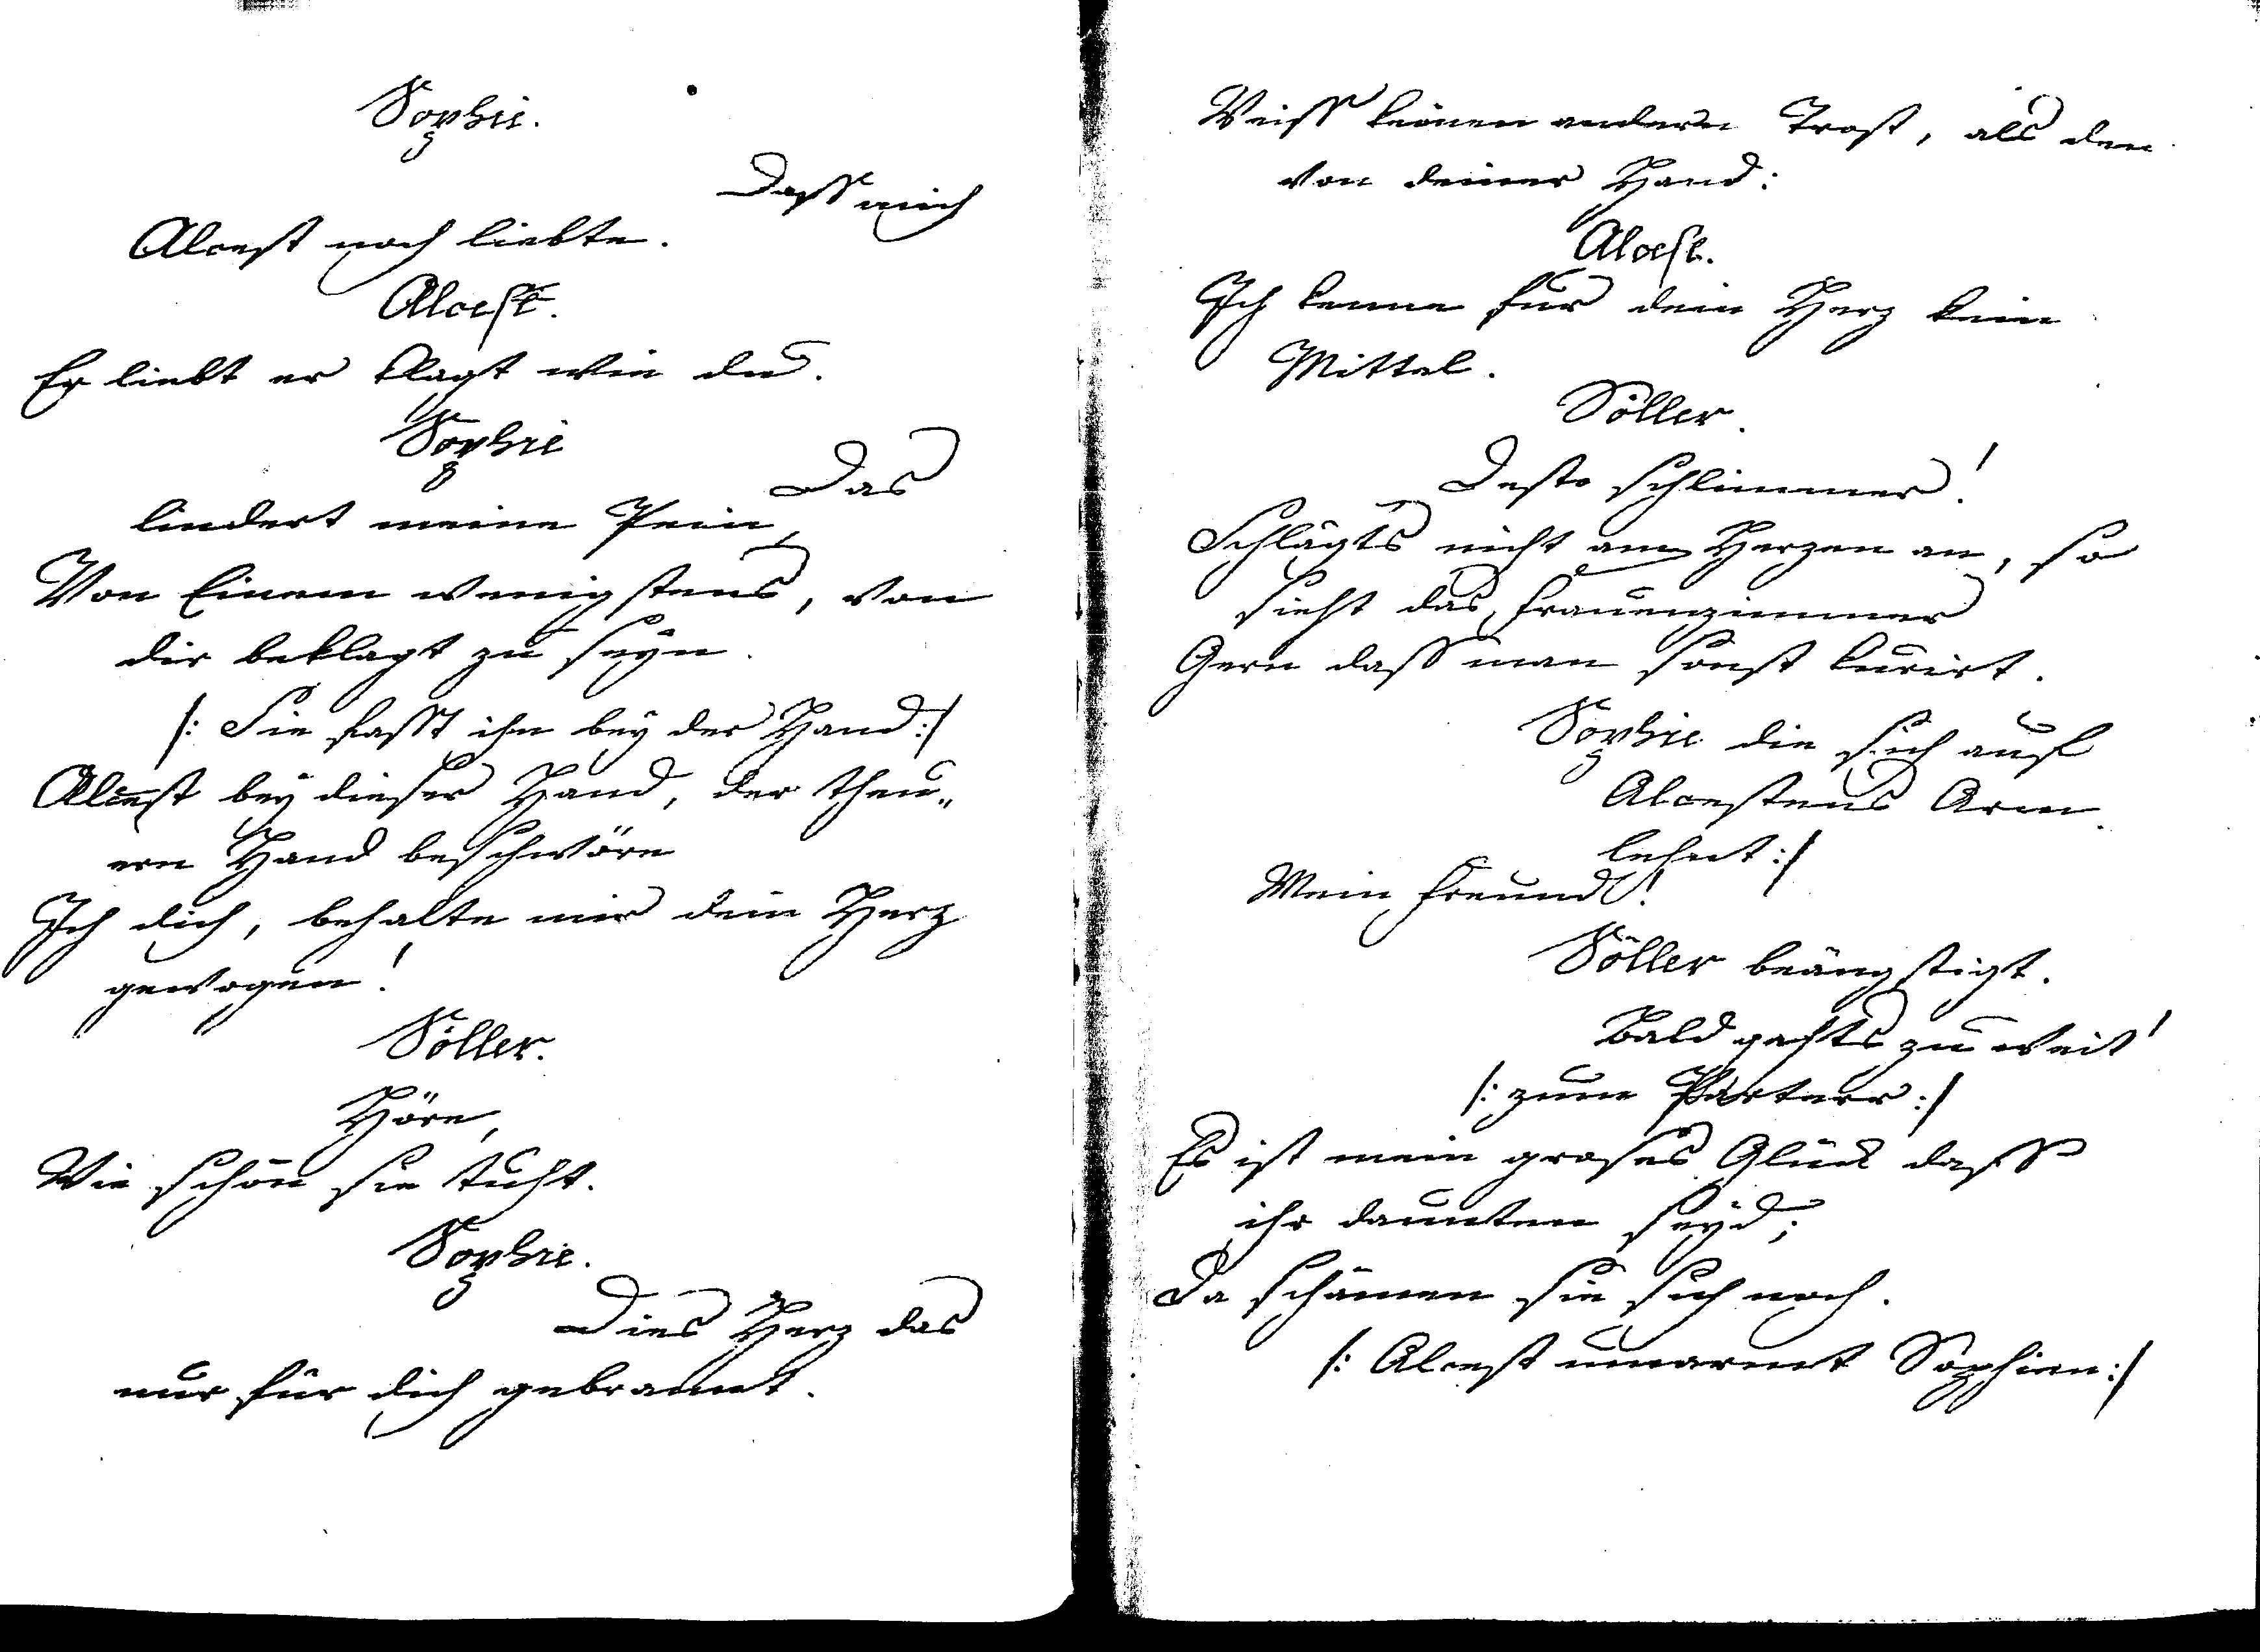 Sophie.
Dass mich
Alcest noch liebte.
Alcest.
Er liebt er klagt wie du.
Sophie
Das
lindert meine Pein,
Von Einem wenigstens, von
dir beklagt zu seyn.
/: Sie fasst ihn bey der Hand :/
Alcest bey dieser Hand, der theu„
ern Hand beschwöre
Ich dich, behalte mir dein Herz
gewogen!
Söller.
Höre,
Wie schön sie tuht.
Sophie.
Dies Herz das
nur für dich gebrannt.
Weiss keinen andern Trost, als den
von deiner Hand:
Alcest.
Ich kenne für dein Herz kein
Mittel.
Söller.
Desto schlimmer!
Schlägts nicht am Herzen an, so
sieht das Frauenzimmer
Gern dass man sonst kurirt.
Sophie die sich auf
Alcestens Arm
lehnt :/
Mein Freund!
Söller beängstigt.
Bald gehts zu weit!
/: zum Parterr :/
Es ist mein groses Glück dass
ihr daunten seyd;
Da schämen sie sich noch.
/: Alcest umarmt Sophien :/